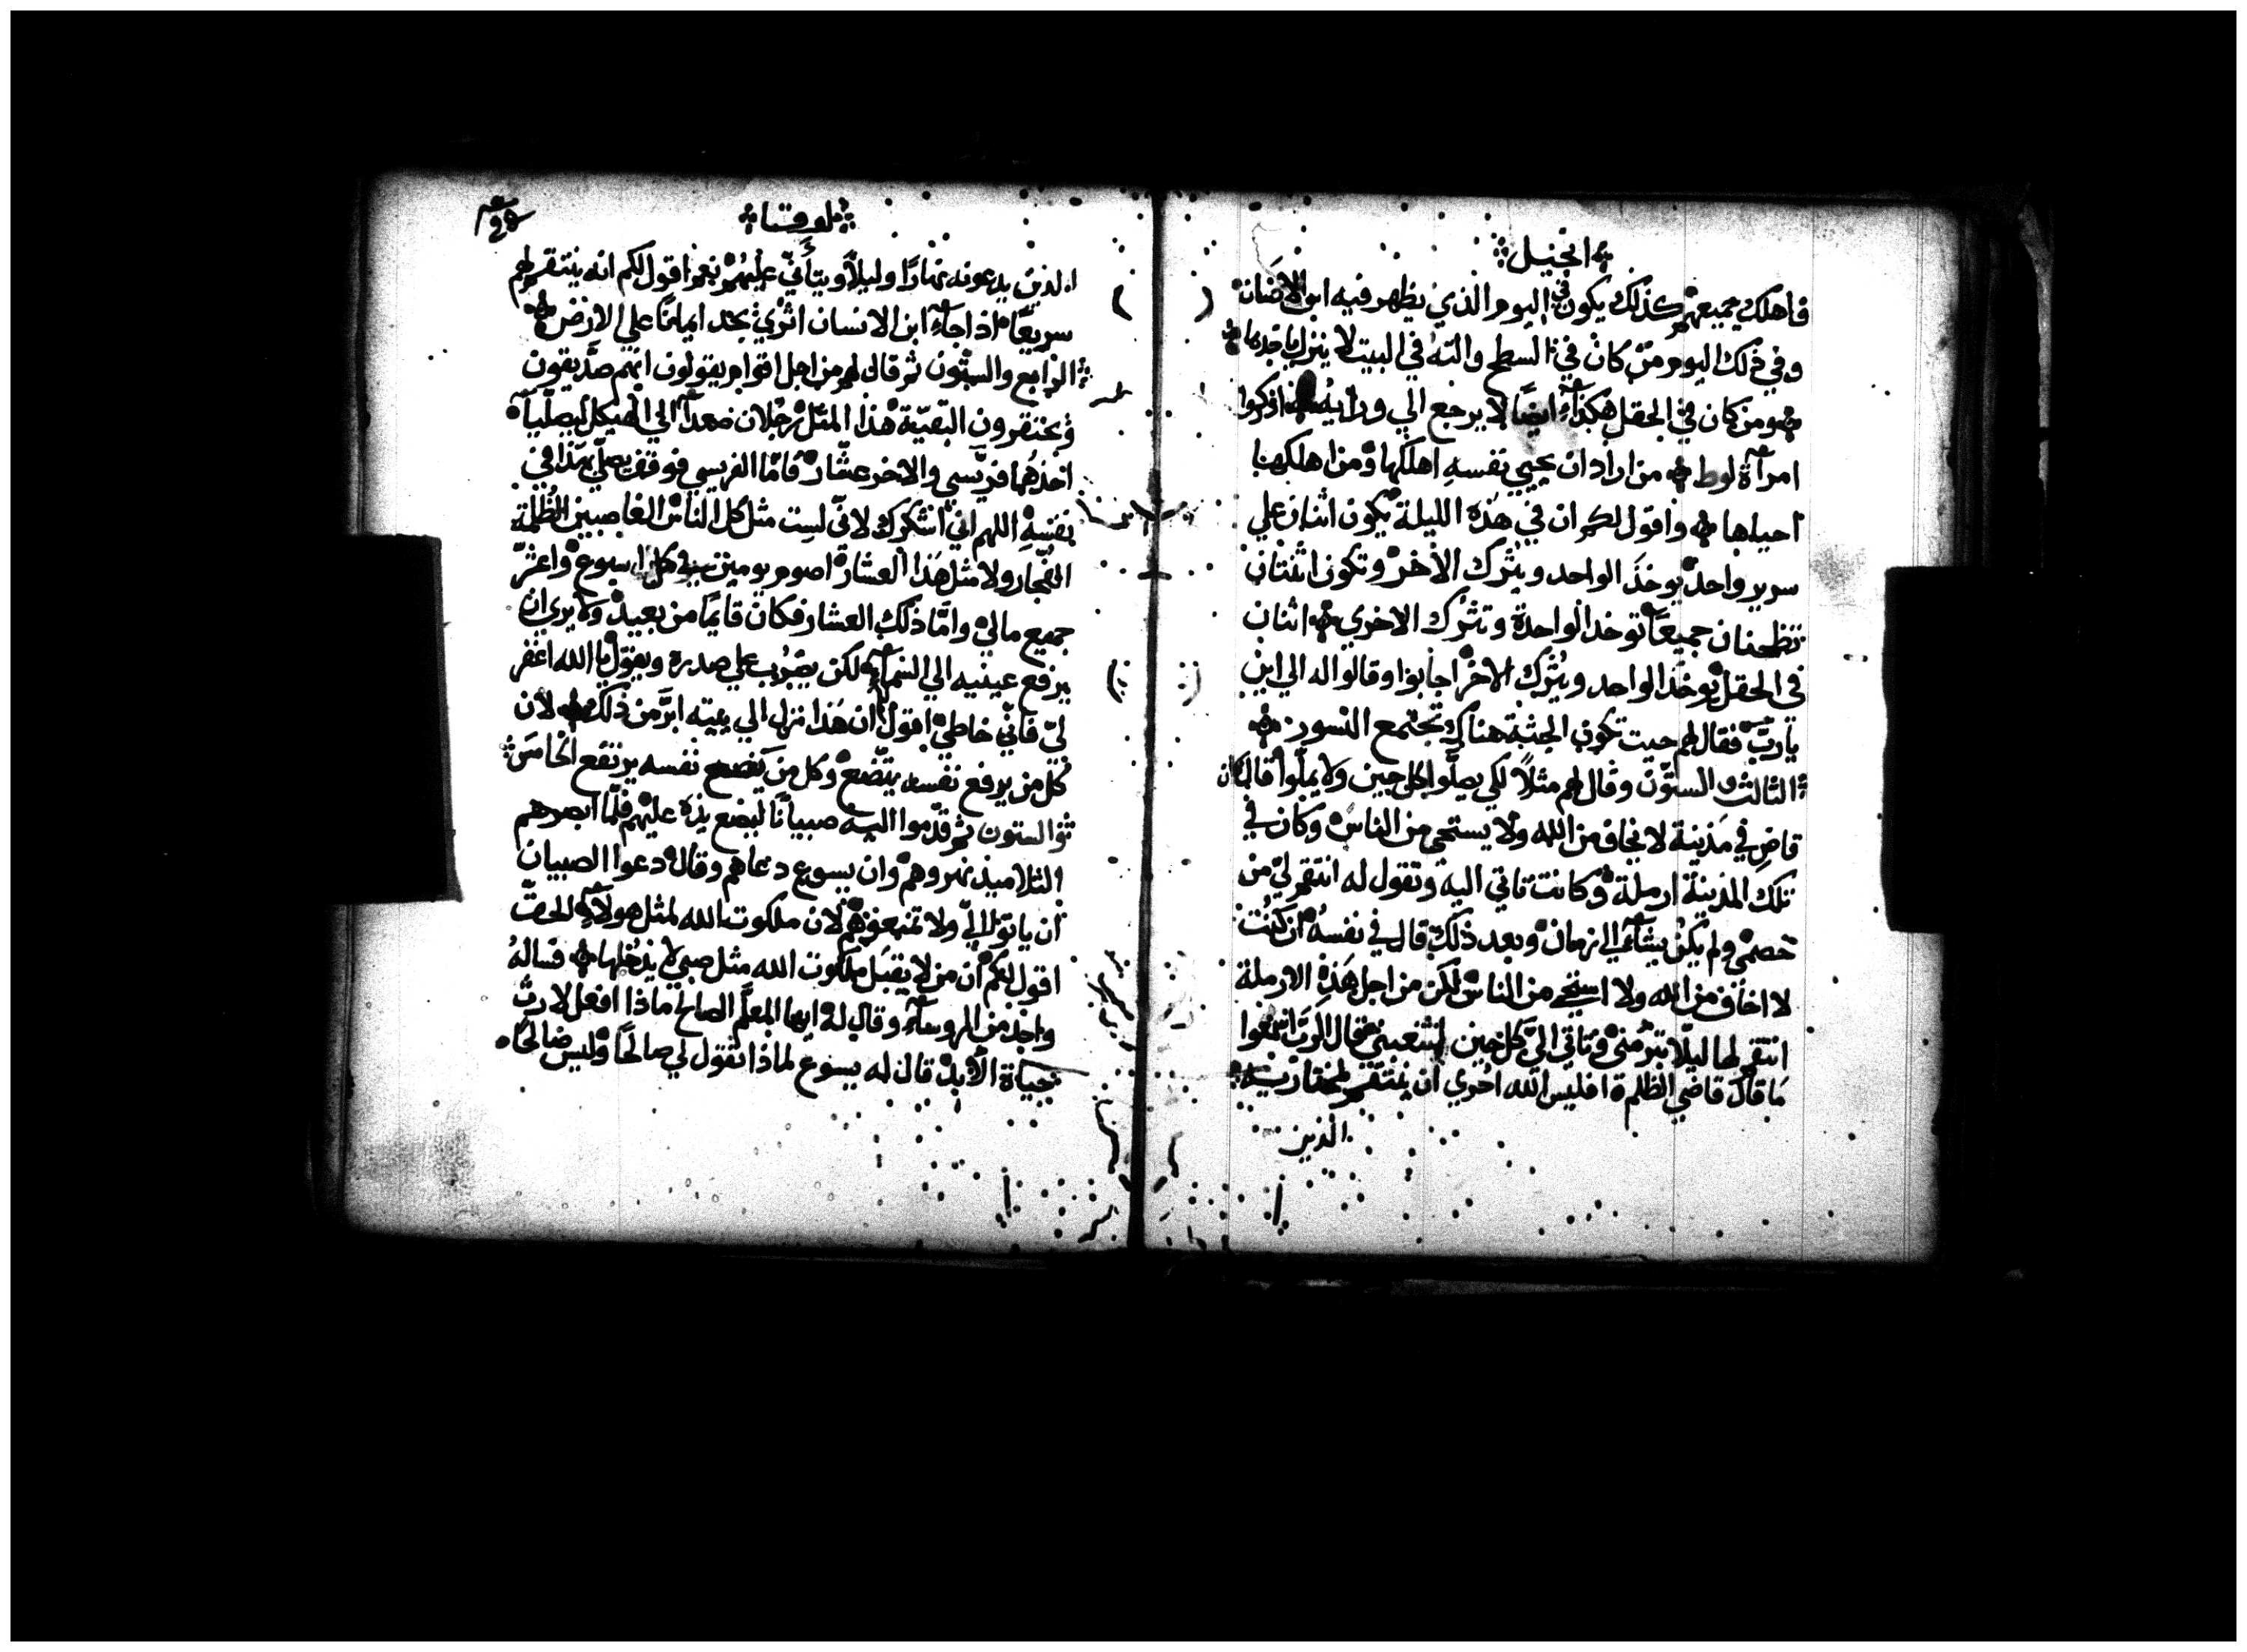 انجيل
فاهلك جميعهم كذلك يكون في اليوم الذي يظهر فيه ابن الانسان
وفي ذلك اليوم من كان في السطح والته في البيت لا ينزل ياخدها
ومن كان في الحقل هكذا ايضا لا يرجع الي ورايه اذكروا
امراة لوط من اراد ان يحيي نفسه اهلكها ومن اهلكها
احياها واقول لكم ان في هذه الليلة يكون اثنان علي
سرير واحد يوخذ الواحد ويترك الاخر وتكون اثنتان
تطحنان جميعا توخد الواحدة وتترك الاخري اثنان
في الحقل يوخذ الواحد ويترك الاخر اجابوا وقالوا له الي اين
يا رب فقال لهم حيت تكون الجثة هناك تجتمع النسور
الثالث والستون وقال لهم مثلا لكي يصلوا كل حين ولا يملوا قال كان
قاض في مدينة لا يخاف من الله ولا يستحي من الناس وكان في
تلك المدينة ارملة وكانت تاتي اليه وتقول له انتقم لي من
خصمي ولم يكن يشا الي زمان وبعد ذلك قال في نفسه ان كنت
لا اخاف من الله ولا استحي من الناس لكن من اجل هذه الارملة
انتقم لها ليلا تبرمني وتاتي الي كل حين لتتعبني فقال الرب اسمعوا
ما قال قاضي الظلمة افليس الله احري ان ينتقم لمختاريه
الذين
لوقا
الذين يدعونه نهارا وليلا ويتأني عليهم نعم اقول لكم انه ينتقم لهم
سريعا اذا جاء ابن الانسان اتري يجد ايمانا علي الارض
الرابع والستون ثم قال لهم من اجل اقوام يقولون انهم صديقون
ويحتقرون البقية هذا المثل رجلان صعدا الي الهيكل ليصليا
احدهما فريسي والاخر عشار فاما الفريسي فوقف يصلي بهذا في
نفسه اللهم اني اشكرك لاني لست مثل كل الناس الغاصبين الظلمة
الفجار ولا مثل هذا العشار اصوم يومين في كل اسبوع واعشر
جميع مالي واما ذلك العشار فكان قايما من بعيد ولا يري ان
يرفع عينيه الي السماء لكن يضرب علي صدره ويقول يا الله اغفر
لي فاني خاطي اقول ان هذا نزل الي بيته ابر من ذلك لان
كل من يرفع نفسه يتضع وكل من يضع نفسه يرتفع الخامس
والستون ثم قدموا اليه صبيانا ليضع يده عليهم فلما ابصرهم
التلاميذ نهروهم وان يسوع دعاهم وقال دعوا الصبيان
ان ياتوا الي ولا تمنعوهم لان ملكوت الله لمثل هولاء الحق
اقول لكم ان من لا يقبل ملكوت الله مثل صبي لا يدخلها فساله
واحد من الروساء وقال له ايها المعلم الصالح ماذا افعل لارث
حياة الابد قال له يسوع لماذا تقول لي صالحا وليس صالحا